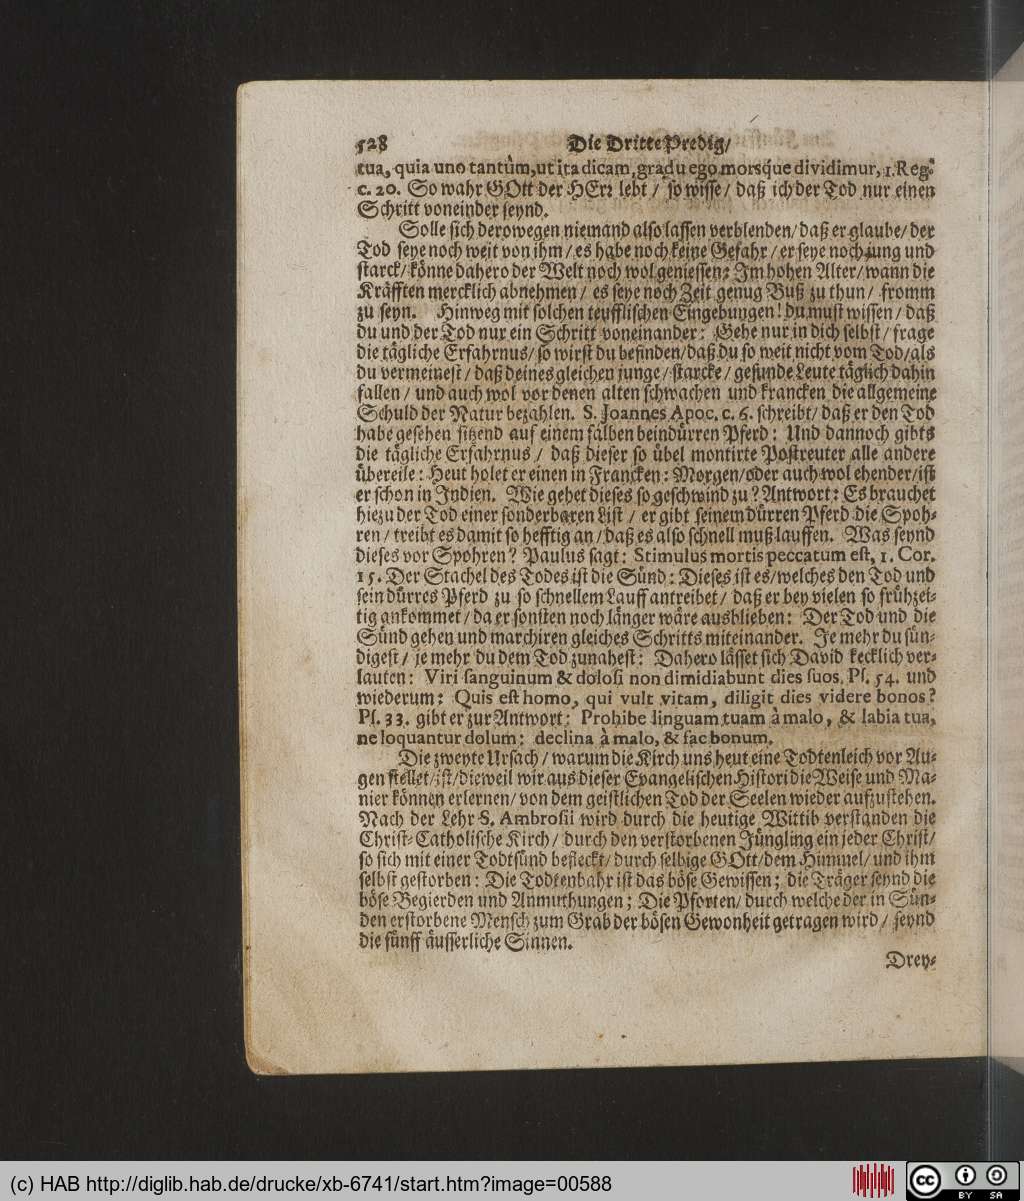 528 Die Dritte Predig/
tua, quia uno tantùm, ut ita dicam, gradu ego morsque dividimur, 1. Reg.
c. 20. So wahr GOtt der HErr lebt / so wisse / daß ich der Tod nur einen
Schritt voneinder seynd.
Solle sich derowegen niemand also lassen verblenden/ daß er glaube/ der
Tod seye noch weit von ihm / es habe noch keine Gefahr / er seye noch jung und
starck/ könne dahero der Welt noch wol geniessen: Im hohen Alter/ wann die
Kräfften mercklich abnehmen / es seye noch Zeit genug Buß zu thun / fromm
zu seyn. Hinweg mit solchen teufflischen Eingebungen! du must wissen / daß
du und der Tod nur ein Schritt voneinander: Gehe nur in dich selbst / frage
die tägliche Erfahrnus/ so wirst du befinden/ daß du so weit nicht vom Tod/ als
du vermeinest / daß deines gleichen junge / starcke / gesunde Leute täglich dahin
fallen / und auch wol vor denen alten schwachen und krancken die allgemeine
Schuld der Natur bezahlen. S. Joannes Apoc. c. 6. schreibt/ daß er den Tod
habe gesehen sitzend auf einem falben beindürren Pferd: Und dannoch gibts
die tägliche Erfahrnus / daß dieser so übel montirte Postreuter alle andere
übereile: Heut holet er einen in Francken: Morgen/ oder auch wol ehender/ ist
er schon in Indien. Wie gehet dieses so geschwind zu? Antwort: Es brauchet
hiezu der Tod einer sonderbaren List / er gibt seinem dürren Pferd die Spoh-
ren / treibt es damit so hefftig an / daß es also schnell muß lauffen. Was seynd
dieses vor Spohren? Paulus sagt: Stimulus mortis peccatum est, 1. Cor.
15. Der Stachel des Todes ist die Sünd: Dieses ist es/ welches den Tod und
sein dürres Pferd zu so schnellem Lauff antreibet / daß er bey vielen so frühzei-
tig ankommet / da er sonsten noch länger wäre ausblieben: Der Tod und die
Sünd gehen und marchiren gleiches Schritts miteinander. Je mehr du sün-
digest / je mehr du dem Tod zunahest: Dahero lässet sich David kecklich ver-
lauten: Viri sanguinum & dolosi non dimidiabunt dies suos. Ps. 54. und
wiederum: Quis est homo, qui vult vitam, diligit dies videre bonos?
Ps. 33. gibt er zur Antwort: Prohibe linguam tuam à malo, & labia tua,
ne loquantur dolum: declina à malo, & fac bonum.
Die zweyte Ursach / warum die Kirch uns heut eine Todtenleich vor Au-
gen stellet/ ist/ dieweil wir aus dieser Evangelischen Histori die Weise und Ma-
nier können erlernen/ von dem geistlichen Tod der Seelen wieder aufzustehen.
Nach der Lehr S. Ambrosii wird durch die heutige Wittib verstanden die
Christ-Catholische Kirch / durch den verstorbenen Jüngling ein jeder Christ/
so sich mit einer Todtsünd befleckt/ durch selbige GOtt/ dem Himmel/ und ihm
selbst gestorben: Die Todtenbahr ist das böse Gewissen; die Träger seynd die
böse Begierden und Anmuthungen; Die Pforten/ durch welche der in Sün-
den erstorbene Mensch zum Grab der bösen Gewonheit getragen wird / seynd
die fünff äusserliche Sinnen.
Drey-
(c) HAB http://diglib.hab.de/drucke/xb-6741/start.htm?image=00588
cc BY SA